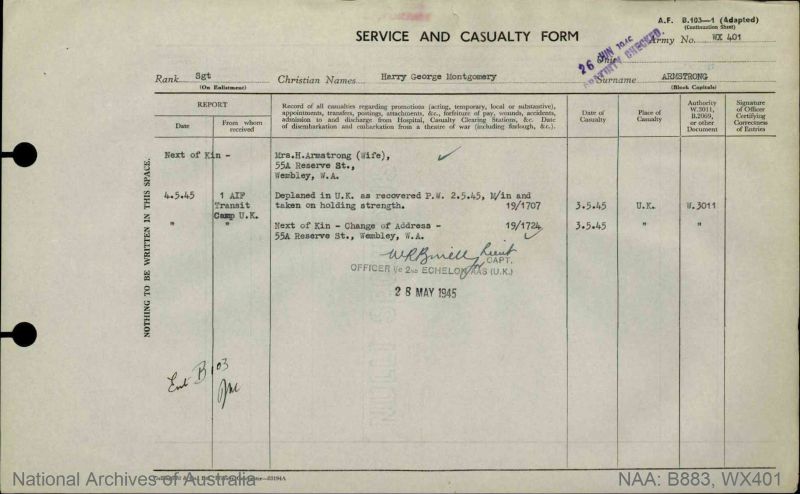 A.F. B.103—1 (Adapted)
(Continuation Sheet)
SERVICE AND CASUALTY FORM
Army No. WX 401
26 JUN 1945
CHECKED.
Unit
Rank Sgt
(On Enlistment)
Christian Names Harry George Montgomery
Surname ARMSTRONG
(Block Capitals)
REPORT
Date
From whom received
Record of all casualties regarding promotions (acting, temporary, local or substantive),
appointments, transfers, postings, attachments, &c., forfeiture of pay, wounds, accidents,
admission to and discharge from Hospital, Casualty Clearing Stations, &c. Date
of disembarkation and embarkation from a theatre of war (including furlough, &c.).
Date of Casualty
Place of Casualty
Authority W.3011, B.2069, or other Document
Signature of Officer Certifying Correctness of Entries
NOTHING TO BE WRITTEN IN THIS SPACE.
Next of Kin - Mrs.H.Armstrong (Wife),
55A Reserve St.,
Wembley, W.A.
4.5.45 1 AIF Deplaned in U.K. as recovered P.W. 2.5.45, M/in and
Transit taken on holding strength. 19/1707 3.5.45 U.K. W.3011
Camp U.K.
" " Next of Kin - Change of Address - 19/1724 3.5.45 " "
55A Reserve St., Wembley, W.A.
Lieut
CAPT.
OFFICER i/c 2ND ECHELON RAS (U.K.)
28 MAY 1945
Ent B 103
National Archives of Australia
NAA: B883, WX401